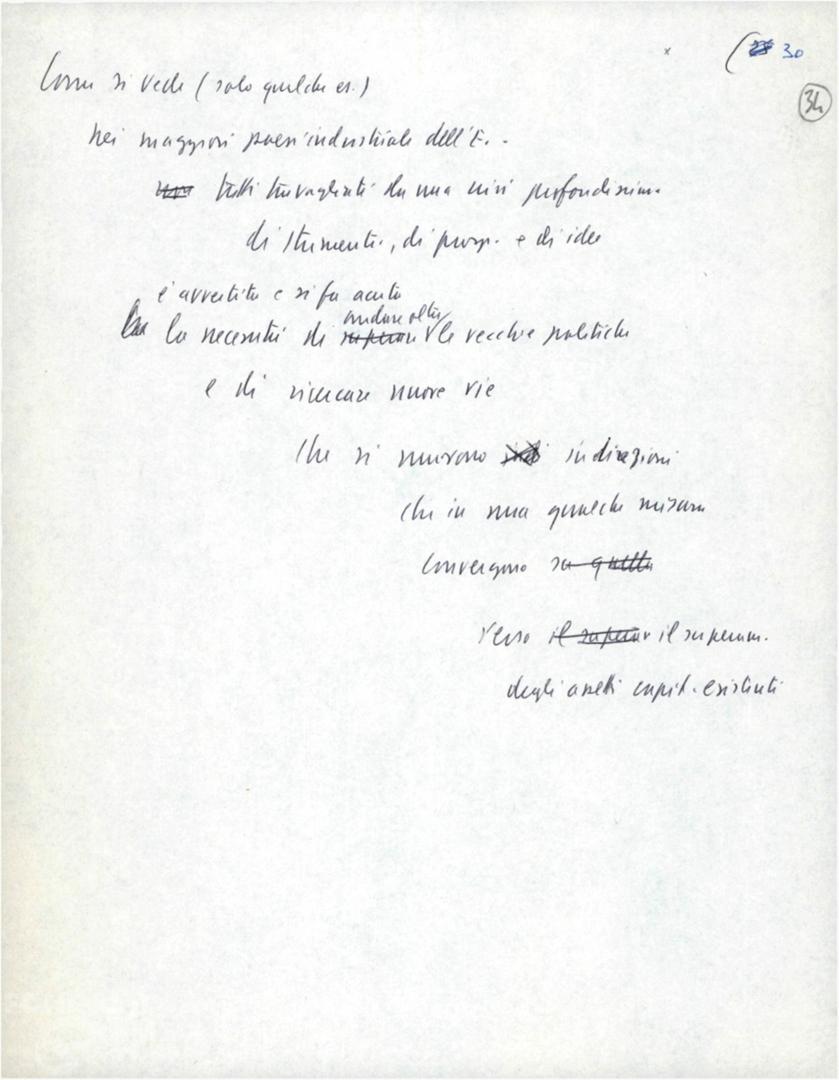 30
34
Come si vede (solo qualche es.)
nei maggiori paesi industriale dell'E..
tutti travagliati da una crisi profondissima
di strumenti, di prosp. e di idee
è avvertita e si fa acuta
andare oltre
la necessità di superare le vecchie politiche
e di ricercare nuove vie
che si muovono in direzioni
che in una qualche misura
convergono su quella
verso il super il superam.
degli assetti capit. esistenti